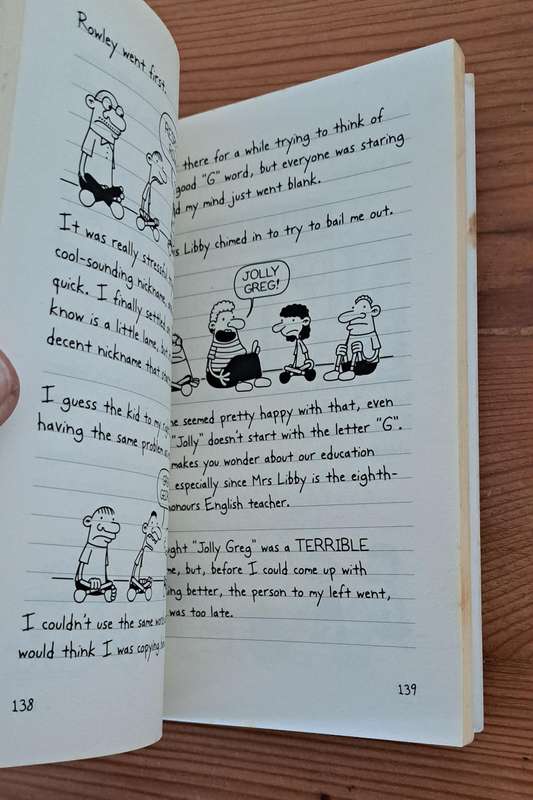 Rowley went first.
It was really
cool-sounding nickname,
quick. I finally settled
know is a little lame, but
decent nickname that
I guess the kid to my
having the same problem
I couldn't use the same
would think I was copying
138
there for a while trying to think of
good "G" word, but everyone was staring
my mind just went blank.
Libby chimed in to try to bail me out.
JOLLY
GREG!
seemed pretty happy with that, even
"Jolly" doesn't start with the letter "G".
makes you wonder about our education
especially since Mrs Libby is the eighth-
honours English teacher.
"Jolly Greg" was a TERRIBLE
but, before I could come up with
better, the person to my left went,
was too late.
139